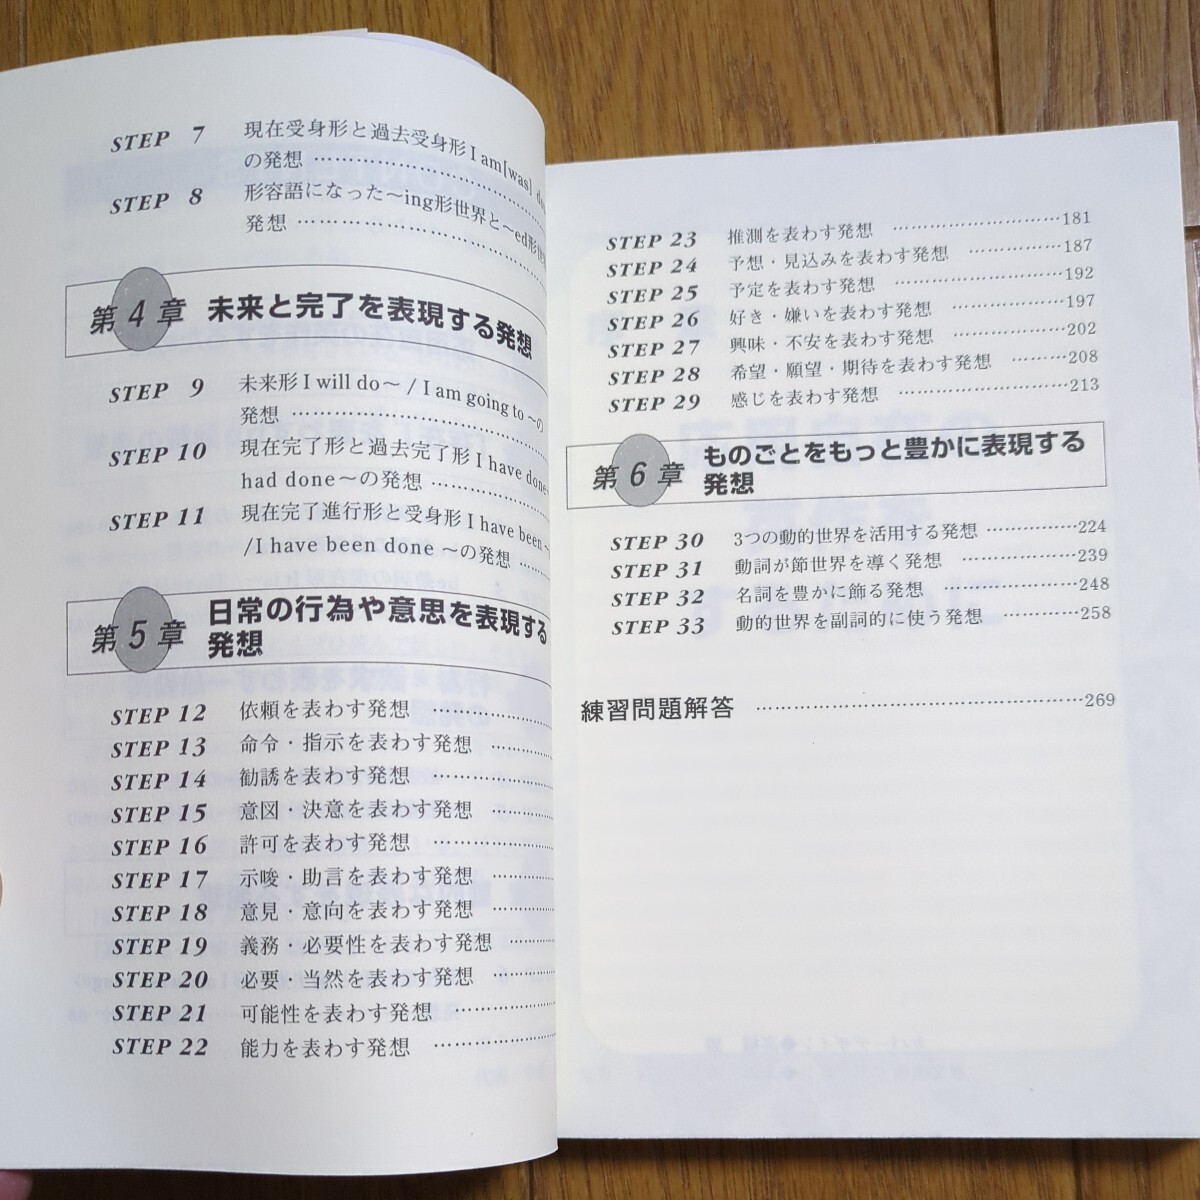 STEP 7 現在受身形と過去受身形 I am[was]
の発想
STEP 8 形容語になった〜ing形世界と〜ed形
発想
第4章 未来と完了を表現する発想
STEP 9 未来形 I will do〜 / I am going to 〜の
発想
STEP 10 現在完了形と過去完了形 I have done
had done〜の発想
STEP 11 現在完了進行形と受身形 I have been 〜
/I have been done 〜の発想
第5章 日常の行為や意思を表現する
発想
STEP 12 依頼を表わす発想
STEP 13 命令・指示を表わす発想
STEP 14 勧誘を表わす発想
STEP 15 意図・決意を表わす発想
STEP 16 許可を表わす発想
STEP 17 示唆・助言を表わす発想
STEP 18 意見・意向を表わす発想
STEP 19 義務・必要性を表わす発想
STEP 20 必要・当然を表わす発想
STEP 21 可能性を表わす発想
STEP 22 能力を表わす発想
STEP 23 推測を表わす発想 181
STEP 24 予想・見込みを表わす発想 187
STEP 25 予定を表わす発想 192
STEP 26 好き・嫌いを表わす発想 197
STEP 27 興味・不安を表わす発想 202
STEP 28 希望・願望・期待を表わす発想 208
STEP 29 感じを表わす発想 213
第6章 ものごとをもっと豊かに表現する
発想
STEP 30 3つの動的世界を活用する発想 224
STEP 31 動詞が節世界を導く発想 239
STEP 32 名詞を豊かに飾る発想 248
STEP 33 動的世界を副詞的に使う発想 258
練習問題解答 269